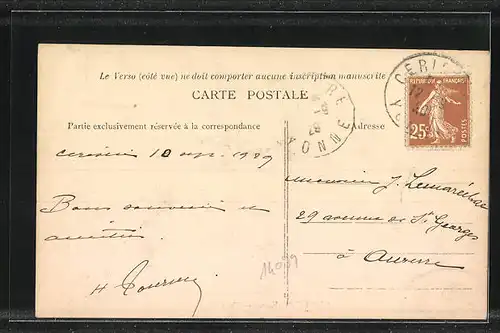 Le Verso (côté vue) ne doit comporter aucune inscription manuscrite
CARTE POSTALE
Partie exclusivement réservée à la correspondance
Adresse
10
RÉPUBLIQUE FRANÇAISE
25c
POSTES
Monsieur J. Lemaréchal
29 avenue de St Georges
à Auxerre
Bons souvenirs et
amitiés
14099